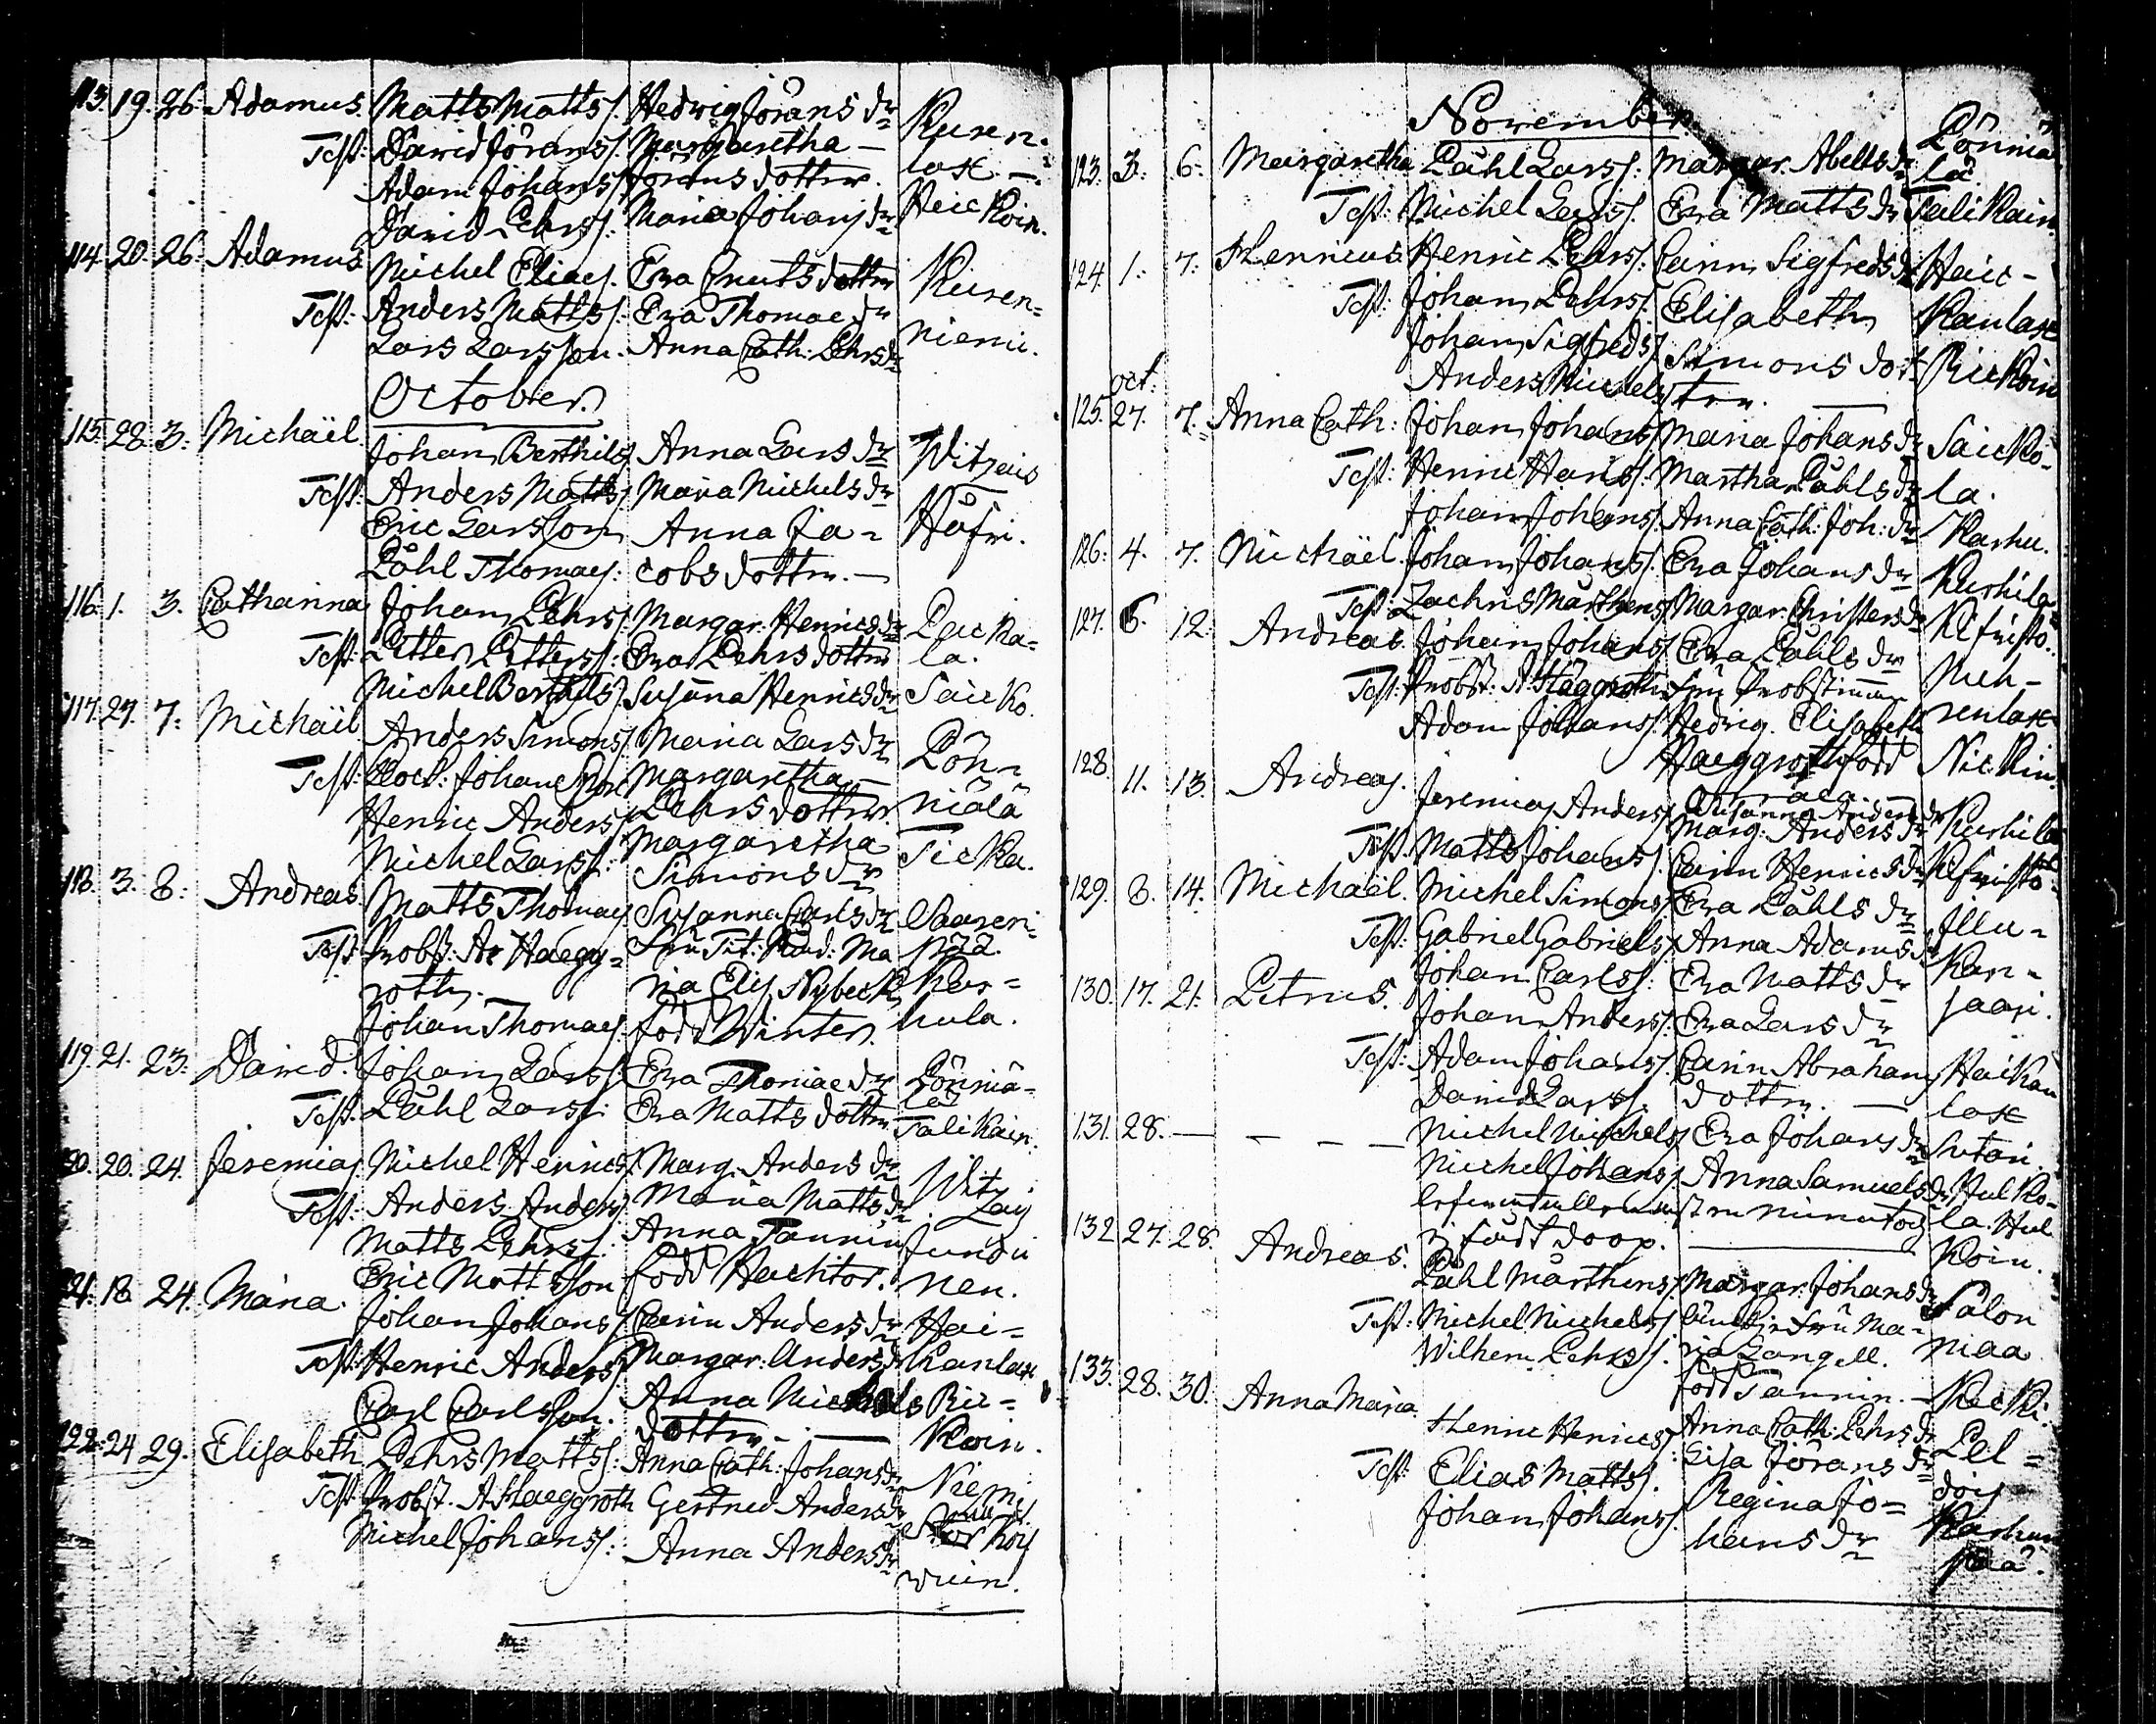 113. 19. 26. Adamus. Matts Matts/: Hedwig Jörans dr Kuren-
Test: David Jörans/: Margaretha — lax. —
Adam Johans/: Jörans dotter.
David Pehrs/: Maria Johans dr Heickoin.
114. 20. 26. Adamus Michel Elias/. Eva Cnuts dotter Kuren-
Test: Anders Matts/: Eva Thomae dr niemi.
Lars Larsson. Anna Cath: Pehrs dr
October.
115. 28. 3. Michaël. Johan Berthils/ Anna Lars dr Witzais
Test: Anders Matts/: Maria Michels dr
Eric Larsson Anna Ja-
Påhl Thomas/: cobs dotter. —
116. 1. 3. Catharina Johan Pehrs/: Margar: Henrics dr Packa-
Test: Petter Petters/: Eva Pehrs dotter la.
Michel Berthils/. Susanna Henrics dr Säcko
117. 27. 7. Michaël Anders Simons/. Maria Lars dr Pön-
Test: Clock: Johan Margaretha — niälä
Henric Anders/ Pehrs dotter
Michel Lars/: Margaretha Ticka.
Simons dr
118. 3. 8. Andreas Matts Thomas/ Susanna Carls dr Saaren-
Test: Probst: Ar Haegg- Fru Tit: Råd: Ma pää.
roth. ria Elis. Nybeck Kar-
Johan Thomas/: född Winter. hula.
119. 21. 23. David. Johan Lars/: Eva Thomae dr Pönniä-
Test. Påhl Lars/: Eva Matts dotter lä Talikain.
120. 20. 24. Jeremias Michel Henrics/. Marg. Anders dr Wit
Test: Anders Anders/ Maria Matts dr zais
Matts Pehrs/: Anna Tannin Jundi
Eric Mattsson född Hachtor. nen.
121. 18. 24. Maria. Johan Johans/: Carin Anders dr Hai-
Test: Henric Anders/ Margar: Anders dr kanlax
Carl Carlsson. Anna Michels Ric-
dotter. — koin.
122. 24. 29. Elisabeth Pehrs Matts/: Anna Cath: Johans dr Niemi
Test: Probst. A Haeggroth Gertrud Anders dr
Michel Johans/: Anna Anders dr
November
123. 3. 6. Margaretha Påhl Lars/: Margar. Abells dr Pönniä
lä
Test: Michel Lars/. Eva Matts dr Talikain.
124. 1. 7. Henricus Henric Pehrs/: Carin Sigfreds dr Haic-
Test: Johan Pehrs/: Elisabeth kanlax
Johan Sigfreds/ Simons dot- Rickoin
Anders Michels/ ter. —
oct:
125. 27. 7. Anna Cath: Johan Johans/ Maria Johans dr Säicko-
Test: Henric Hans/: Martha Påhls dr la.
Johan Johans/. Anna Cath: Joh: dr Karhu.
126. 4. 7. Michaël. Johan Johans/. Eva Johans dr Kurhila
Test: Zachris Mårthens/ Margar: Christers dr
127. 6. 12. Andreas. Johan Johans/ Eva Påhls dr
Test: Probst: A. Häggroth Fru Probstinnan
Adam Johans/: Hedvig. Elisabeth
Haeggroth född Nickin.
128. 11. 13. Andreas. Jeremias Anders/ Susanna Anders dr Kurhila
Marg: Anders dr
Test. Matts Johans/. Carin Henrics dr
129. 8. 14. Michaël. Michel Simons/ Eva Påhls dr Illu-
Test: Gabriel Gabriels/ Anna Adams dr kan-
Johan Carls/: Eva Matts dr saari.
130. 17. 21. Petrus. Johan Anders/. Eva Lars dr
Test: Adam Johans/. Carin Abrahams Haikan
David Lars/. dotter. — lax
131. 28. — — — — Michel Michels/ Eva Johans dr Sutari.
Michel Johans/ Anna Samuels dr Hulko-
la. Hul
fådt doop. koin.
132. 27. 28. Andreas. Påhl Mårthens/. Margar: Johans dr Salon
Test: Michel Michels/ Fru Ma- niaa
Wilhem Pehrs/. ria Zangell.
född Tannin. — Kecki.
133. 28. 30. Anna Maria Henric Henrics/. Anna Cath: Pehrs dr Pel-
Test: Elias Matts/. Lisa Jörans dr dois
Johan Johans/. Regina Jo- Karhun
hans dr pää.